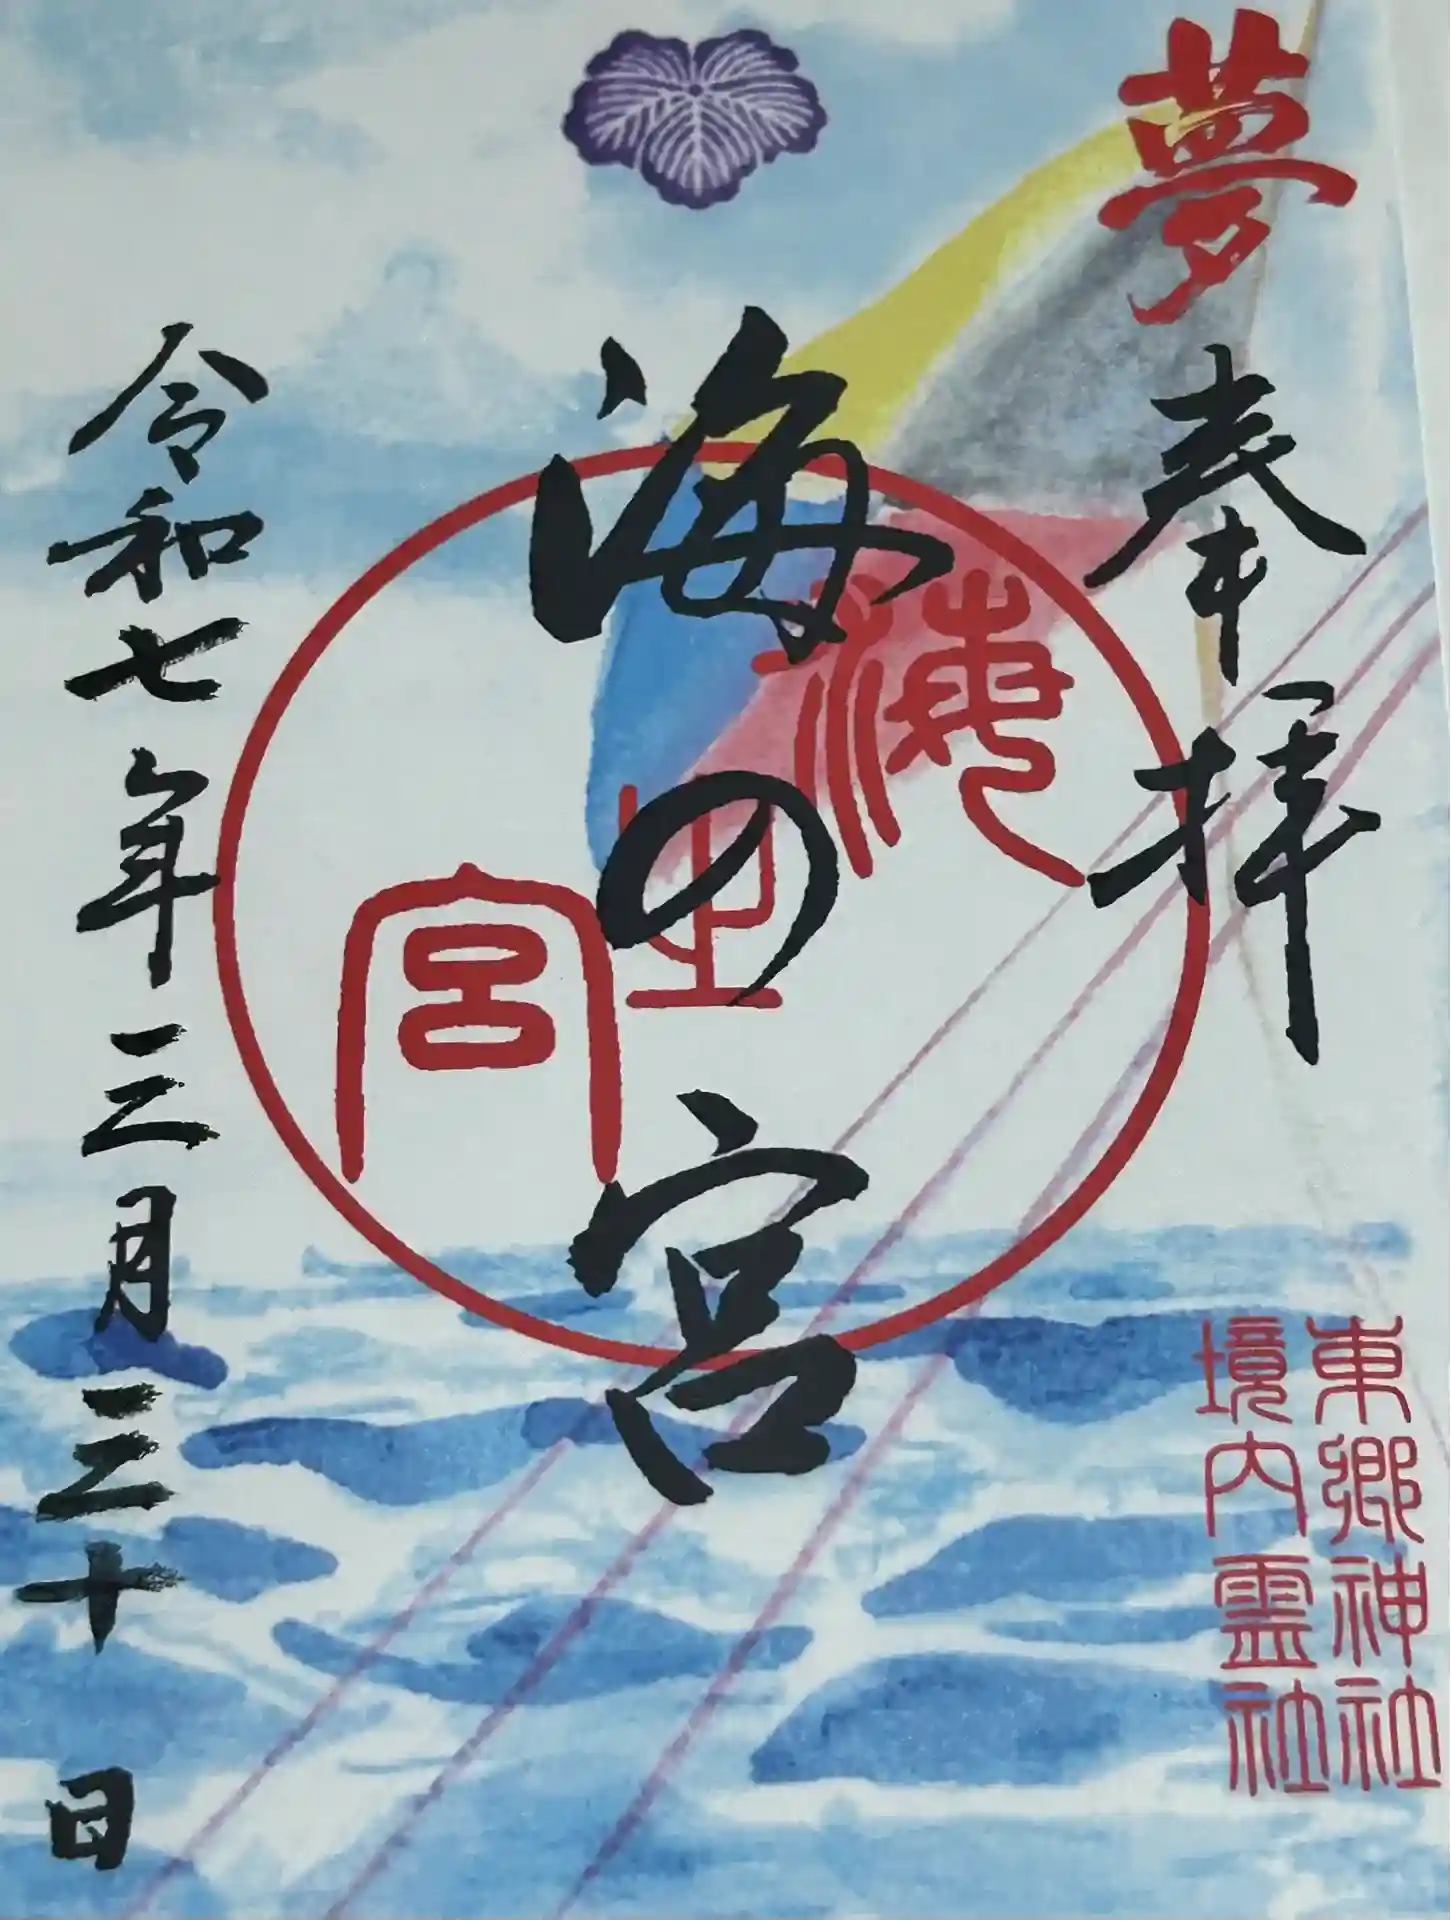 夢
奉拝
東郷神社
境内霊社
海の宮
海之宮
令和七年三月三十日